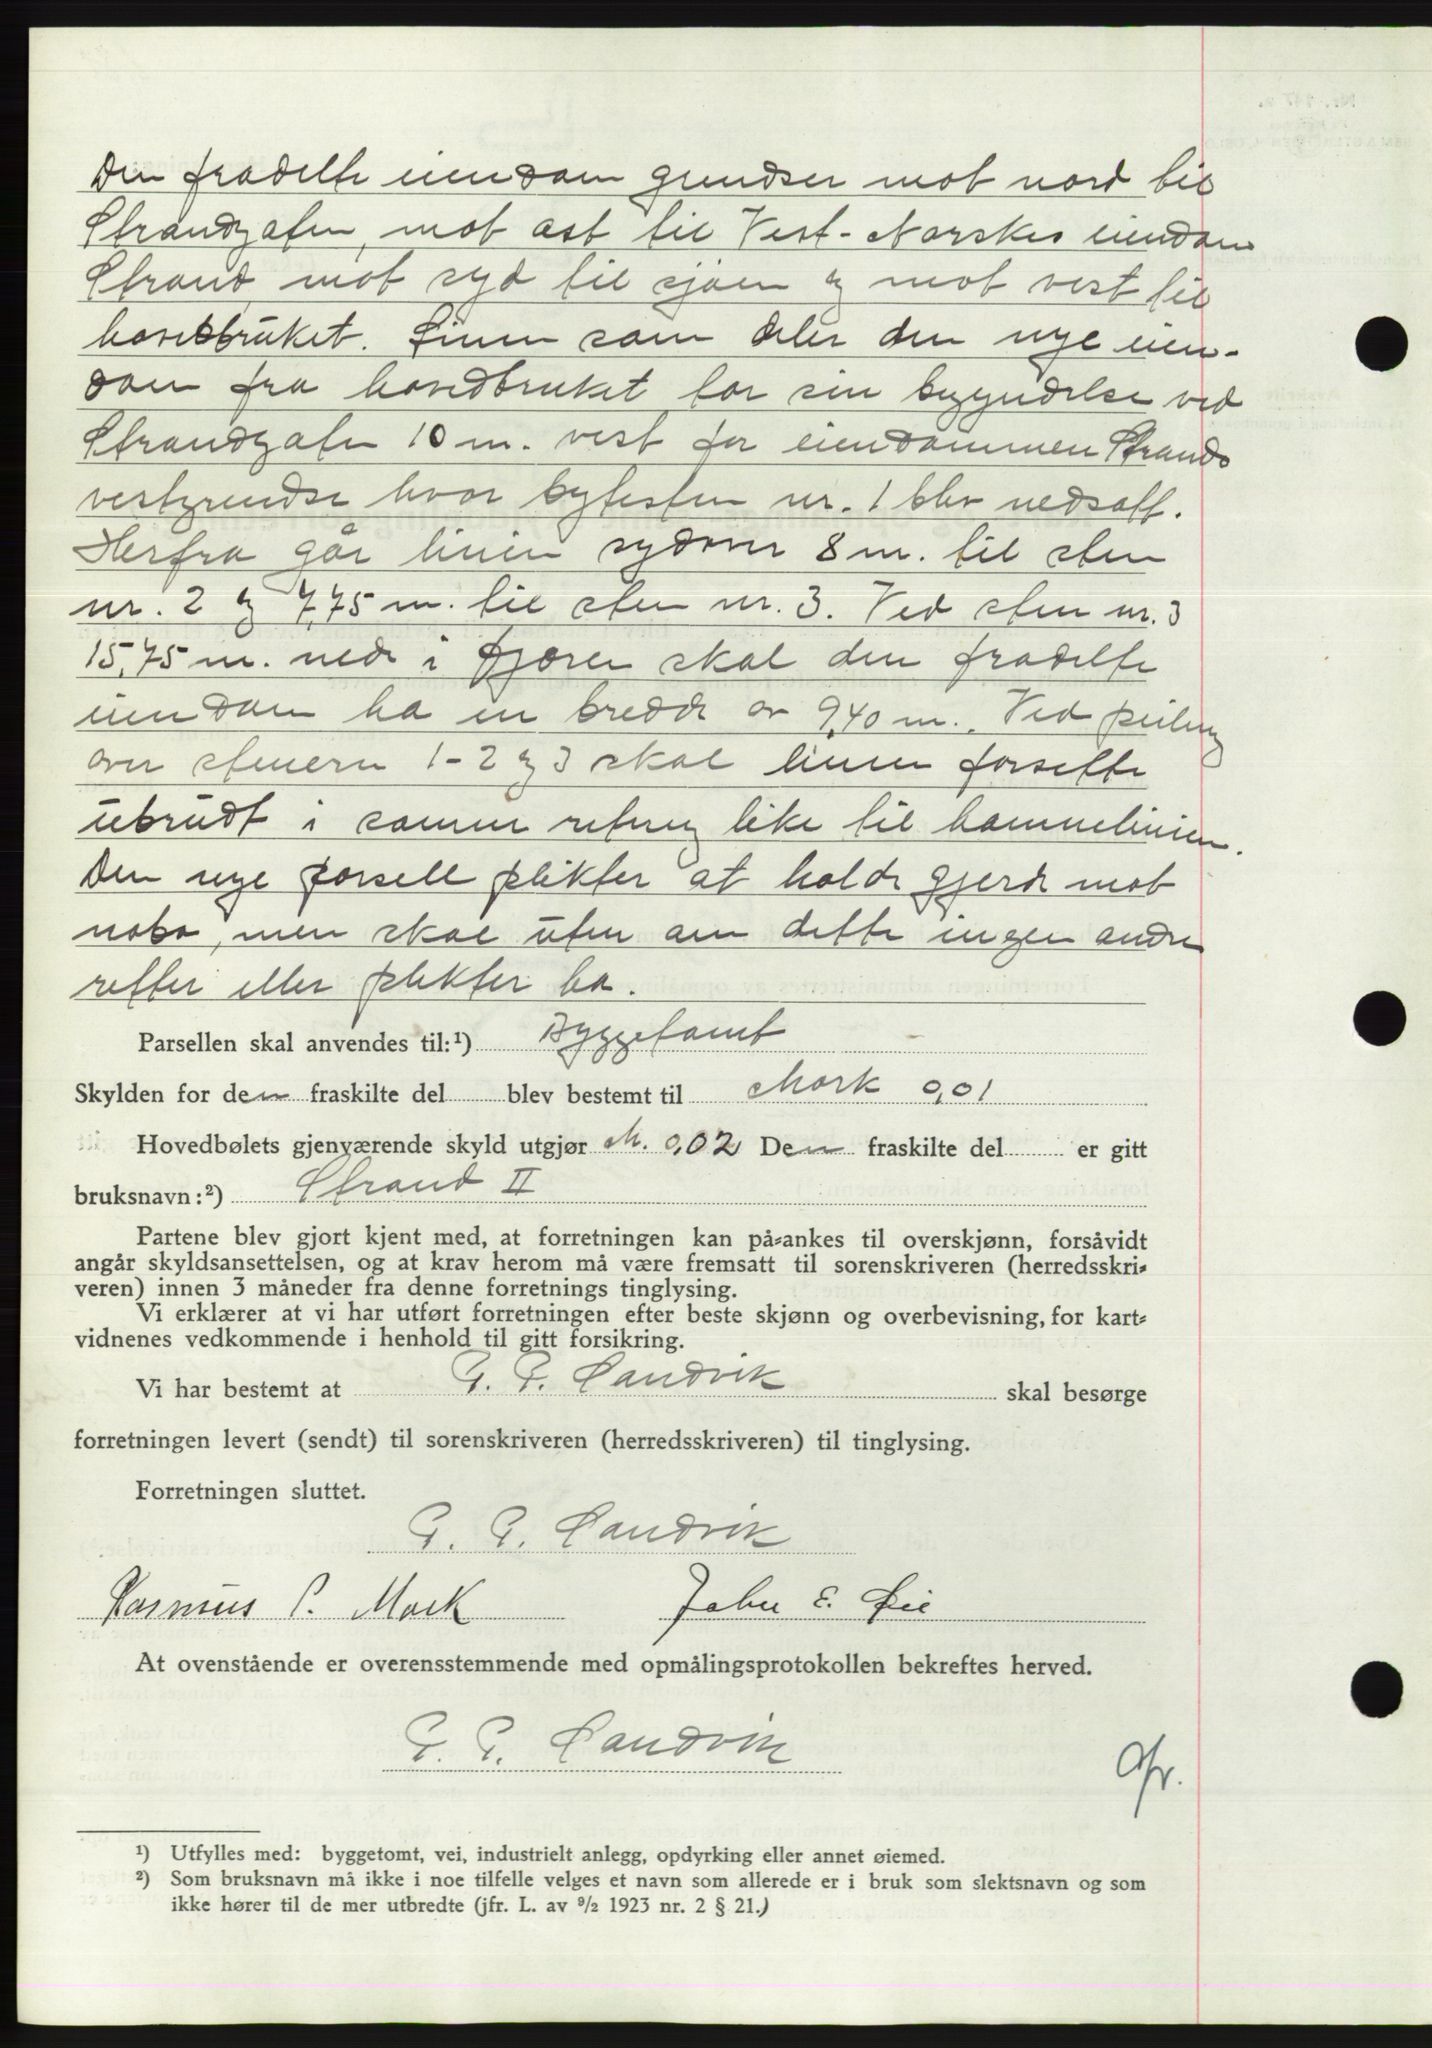 Den fradelte eiendom grendser mot nord til
Strandgaten, mot øst til Vest-Norskes eiendom
Strand, mot syd til sjøen og mot vest til
hovedbruket. Linien som deler den nye eien-
dom fra hovedbruket tar sin begyndelse ved
Strandgaten 10 m. vest for eiendommen Strands
vestgrendse hvor bytesten nr. 1 blev nedsatt.
Herfra går linien sydover 8 m. til sten
nr. 2 og 7,75 m. til sten nr. 3. Ved sten nr. 3
15,75 m. nede i fjæren skal den fradelte
eiendom ha en bredde av 9,40 m. Ved peiling
over stenern 1-2 og 3 skal linien forsette
ubrudt i samme retning like til
Den nye parsell plikter at holde gjerde mot
nabo, men skal uten om dette ingen andre
retter eller plikter ha.
Parsellen skal anvendes til:¹) Byggetomt
Skylden for den fraskilte del blev bestemt til Mork 0,01
Hovedbølets gjenværende skyld utgjør M. 0,02 Den fraskilte del er gitt
bruksnavn:²) Strand II
Partene blev gjort kjent med, at forretningen kan på-ankes til overskjønn, forsåvidt
angår skyldsansettelsen, og at krav herom må være fremsatt til sorenskriveren (herredsskri-
veren) innen 3 måneder fra denne forretnings tinglysing.
Vi erklærer at vi har utført forretningen efter beste skjønn og overbevisning, for kart-
vidnenes vedkommende i henhold til gitt forsikring.
Vi har bestemt at P. P. Sandvik skal besørge
forretningen levert (sendt) til sorenskriveren (herredsskriveren) til tinglysing.
Forretningen sluttet.
P. P. Sandvik
Rasmus P. Mork John E. Øie
At ovenstående er overensstemmende med opmålingsprotokollen bekreftes herved.
P. P. Sandvik
¹) Utfylles med: byggetomt, vei, industrielt anlegg, opdyrking eller annet øiemed.
²) Som bruksnavn må ikke i noe tilfelle velges et navn som allerede er i bruk som slektsnavn og som
ikke hører til de mer utbredte (jfr. L. av ⁹/₂ 1923 nr. 2 § 21.)